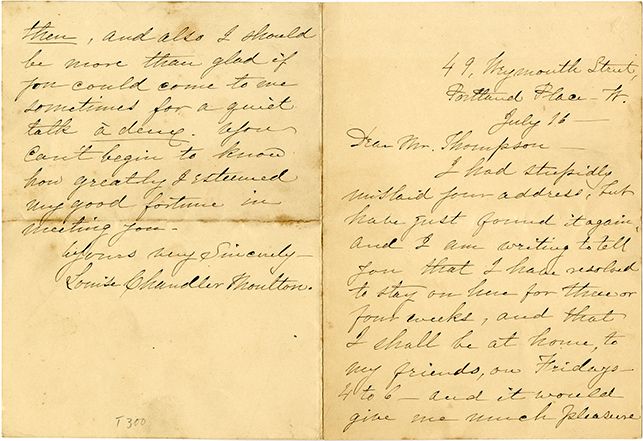 49, Weymouth Street,
Portland Place - W.
July 16 -
Dear Mr. Thompson -
I had stupidly
mislaid your address, but
have just found it again,
and I am writing to tell
you that I have resolved
to stay on here for three or
four weeks, and that
I shall be at home, to
my friends, on Fridays -
4 to 6 - and it would
give me much pleasure
then, and also I should
be more than glad if
you could come to me
sometimes for a quiet
talk à deux. You
can't begin to know
how greatly I esteemed
my good fortune in
meeting you -
Yours very Sincerely -
Louise Chandler Moulton.
T300